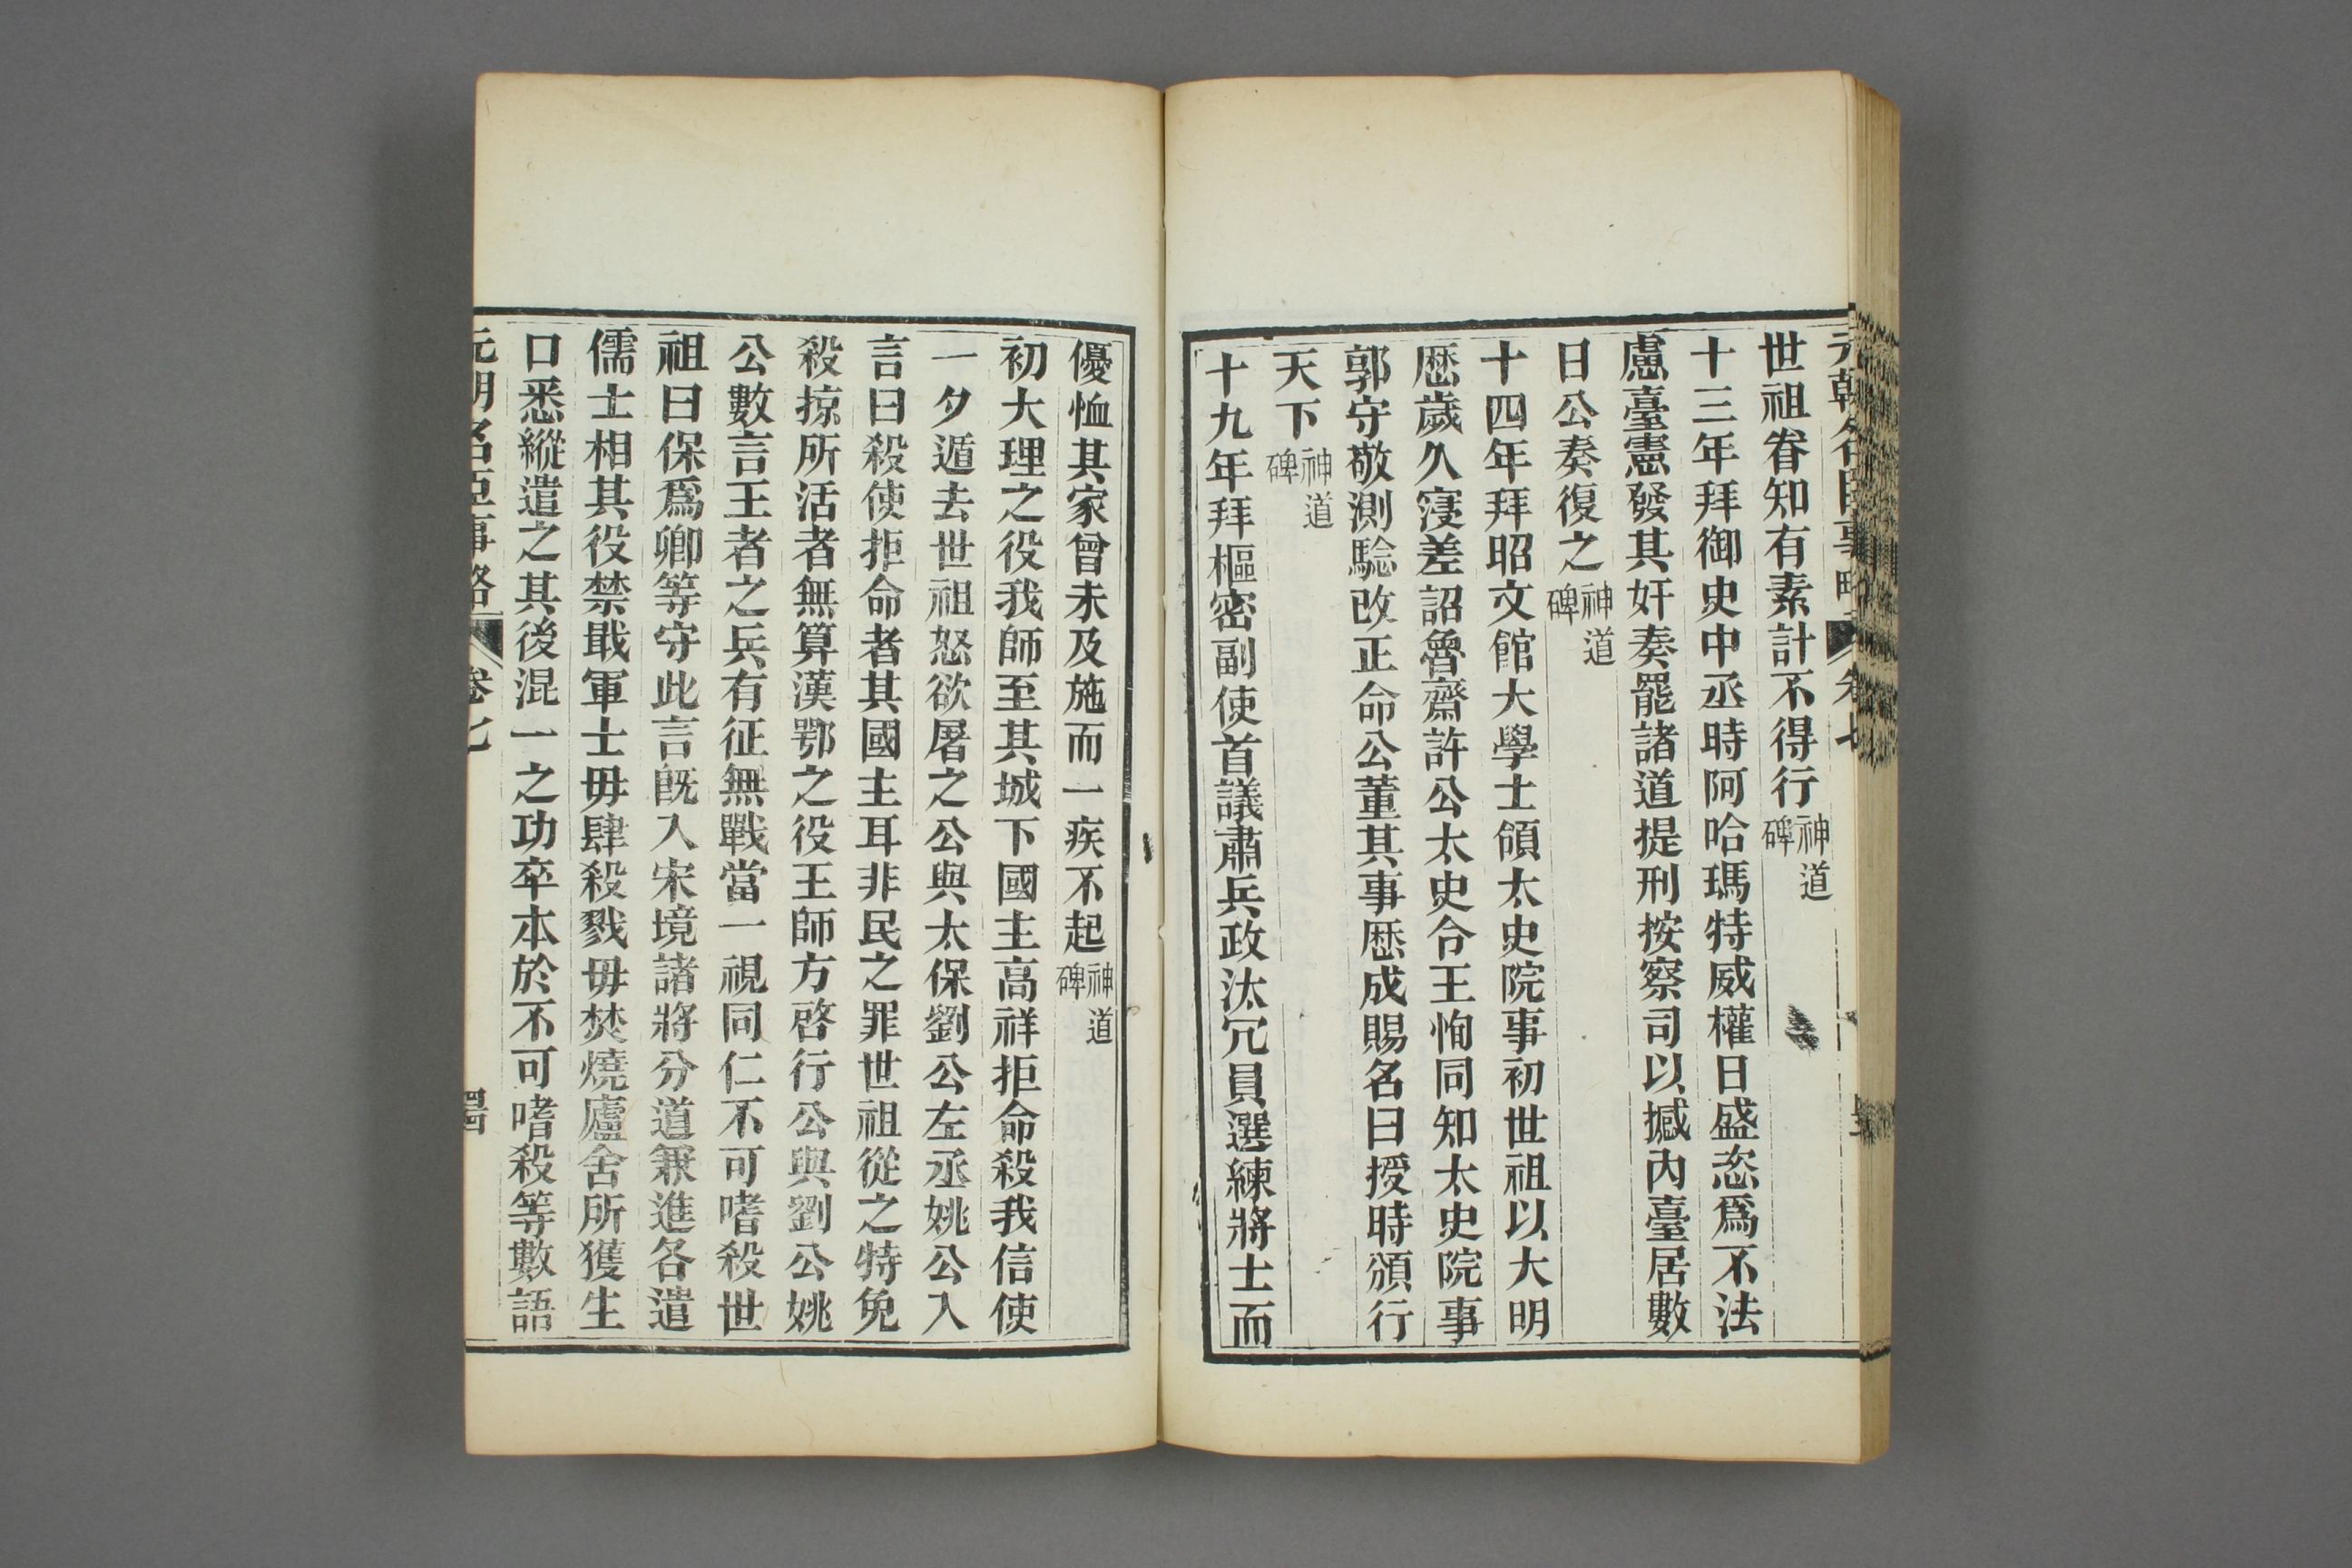 世祖眷知有素計不得行神道碑
十三年拜御史中丞時阿哈瑪特威權日盛恣爲不法
慮臺憲發其奸奏罷諸道提刑按察司以撼內臺居數
日公奏復之神道碑
十四年拜昭文館大學士領太史院事初世祖以大明
歷歲久寖差詔魯齋許公太史令王恂同知太史院事
郭守敬測驗改正命公董其事歷成賜名曰授時頒行
天下神道碑
十九年拜樞密副使首議肅兵政汰冗員選練將士而
優恤其家曾未及施而一疾不起神道碑
初大理之役我師至其城下國主高祥拒命殺我信使
一夕遁去世祖怒欲屠之公與太保劉公左丞姚公入
言曰殺使拒命者其國主耳非民之罪世祖從之特免
殺掠所活者無算漢鄂之役王師方啓行公與劉公姚
公數言王者之兵有征無戰當一視同仁不可嗜殺世
祖曰保爲卿等守此言旣入宋境諸將分道兼進各遣
儒士相其役禁戢軍士毋肆殺戮毋焚燒廬舍所獲生
口悉縱遣之其後混一之功卒本於不可嗜殺等數語
元朝名臣事略 卷七